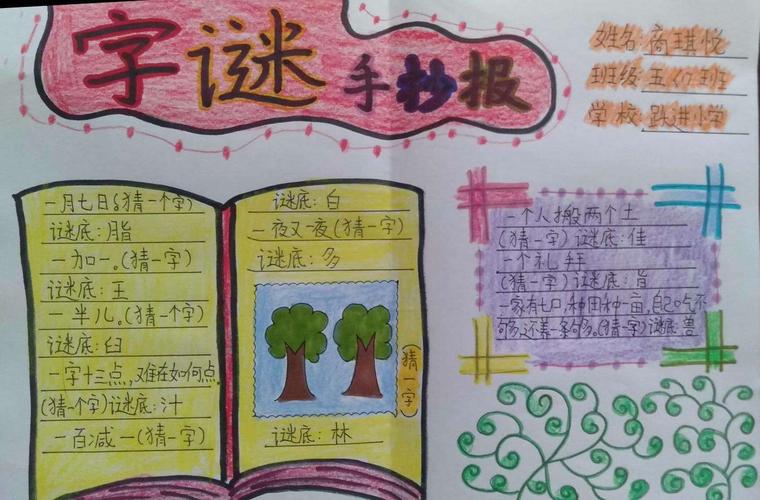 字谜手抄报
姓名:商琪悦
班级:五
学校:跃进小学
一月七日(猜一个字)
谜底:脂
一加一。(猜一字)
谜底:王
一半儿。(猜一个字)
谜底:臼
一字十三点,难在如何点。
(猜一个字)谜底:汁
一百减一(猜一字)
谜底:白
一夜又一夜(猜一字)
谜底:多
(猜一字)
谜底:林
一个人搬两个土
(猜一字)谜底:佳
一个礼拜
(猜一字)谜底:旨
一家有七口,种田种一亩,自己吃不
够,还养一条狗。(猜一字)谜底:兽